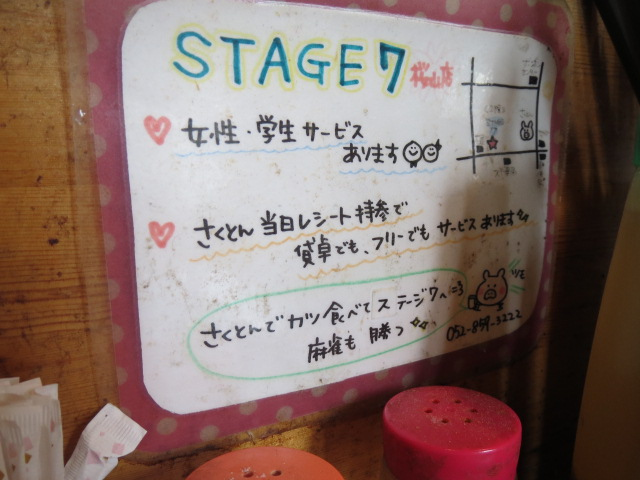 STAGE 7 桜山店
女性・学生サービス
あります
さくとん当日レシート持参で
貸卓でも、フリーでもサービスあります
さくとんでカツ食べてステージ7へGo
麻雀も勝つ
ツモ
052-859-3222